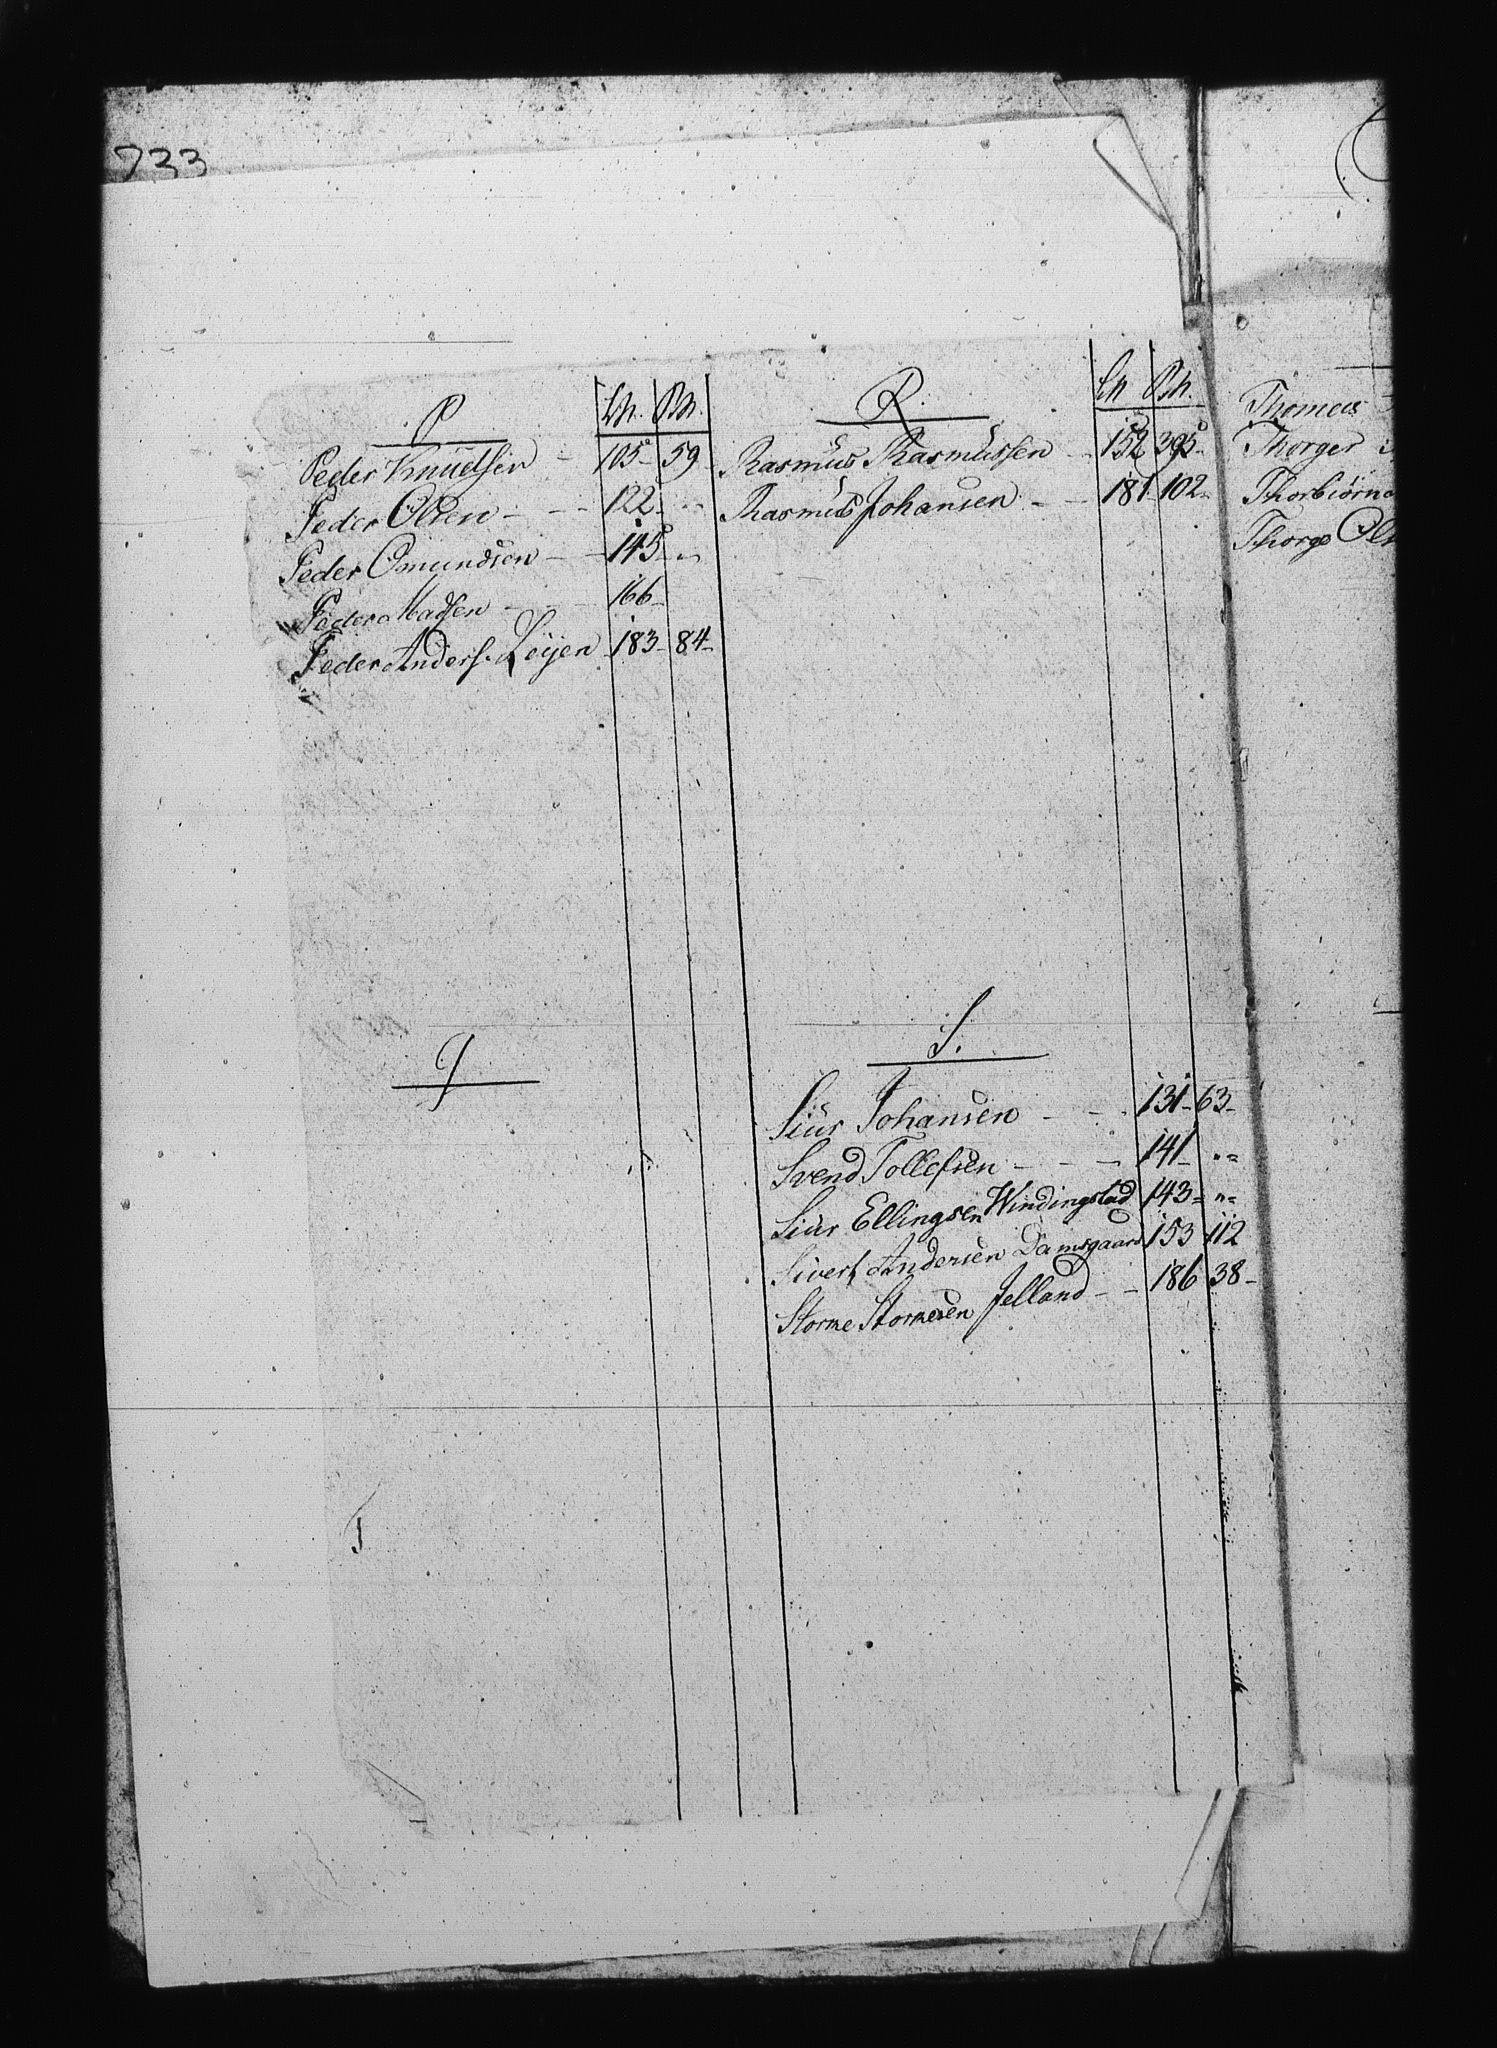 733
P
LN. RN.
Peder Knudsen - 105 - 59
Peder Olsen - - - 122 - "
Peder Omundsen - - 145 - "
Peder Madsen - - 166 -
Peder Anders. Løyen - 183 - 84 -
R
LN RN.
Rasmus Rasmussen - - 152 395 -
Rasmus Johansen - - 181 - 102 -
Q
S.
Siur Johansen - - - 131 - 63 -
Svend Tollefsen - - - 141 - "
Siur Ellingsen Windingstad 143 - "
Sivert Andersen Damsgaard 153 112
Storme Stormesen Jelland - - 186 38 -
Thomas
Thorger
Thorbiørn
Thorge Ols